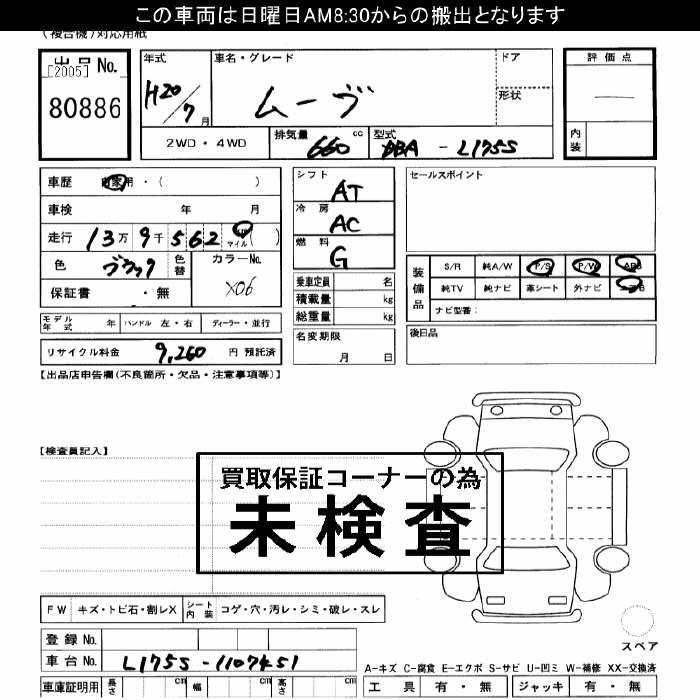 この車両は日曜日AM8:30からの搬出となります
(複合機)対応用紙
出品 No.
[2005]
80886
年式 H20/7月
車名・グレード ムーヴ
ドア
形状
評価点
内装
2WD・4WD
排気量 660 cc
型式 DBA - L175S
車歴 自家用・( )
車検 年 月
走行 13万9千562 マイル( )
色 ブラック 色替
カラーNo. X06
保証書 ・ 無
シフト AT
冷房 AC
燃料 G
乗車定員 名
積載量 kg
総重量 kg
セールスポイント
装備品
S/R 純A/W P/S P/W ABS
純TV 純ナビ 革シート 外ナビ
ナビ型番:
モデル年式 年 ハンドル 左・右 ディーラー・並行
名変期限 月 日
後日品
リサイクル料金 9,260 円 預託済
【出品店申告欄(不良箇所・欠品・注意事項等)】
【検査員記入】
買取保証コーナーの為
未検査
FW キズ・トビ石・割レX シート内装 コゲ・穴・汚レ・シミ・破レ・スレ
スペア
登録 No.
車台 No. L175S-1107451
A-キズ C-腐食 E-エクボ S-サビ U-凹ミ W-補修 XX-交換済
車庫証明用 長さ cm 幅 cm 高さ cm
工具 有・無 ジャッキ 有・無